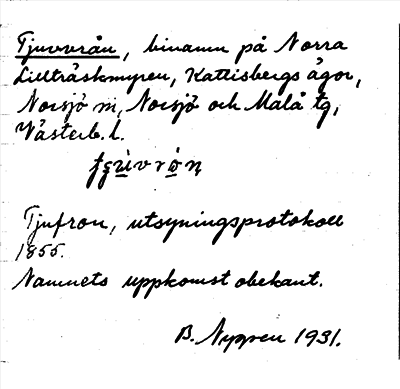 Tjuvvrån, binamn på Norra
Lillträskmyren, Kattisbergs ägor,
Norsjö sn, Norsjö och Malå tg,
Västerb. l.
Tjufron, utsyningsprotokoll
1855.
Namnets uppkomst obekant.
B. Nygren 1931.